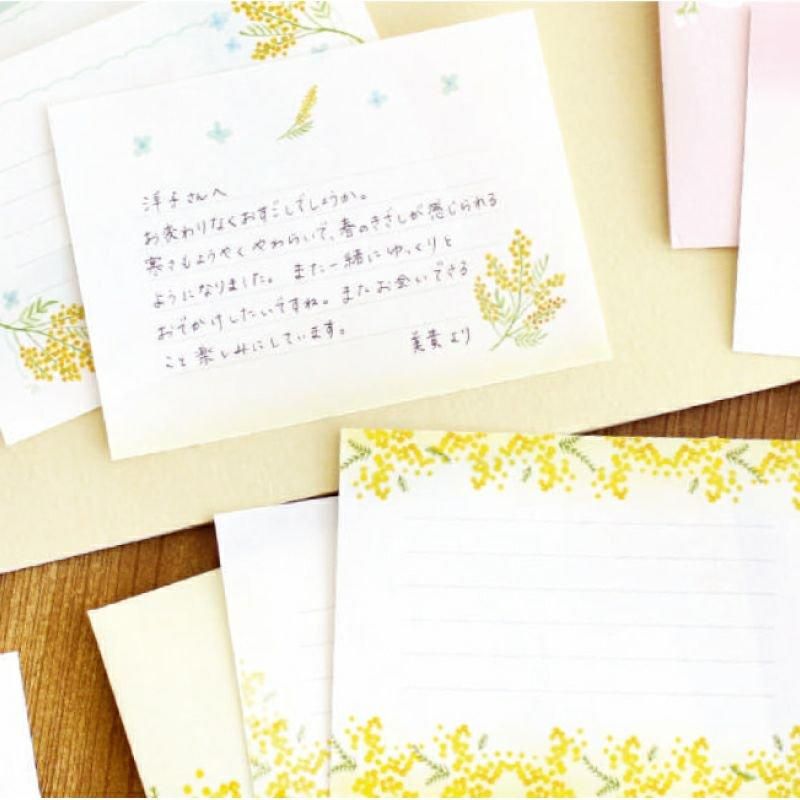 洋子さんへ
お変わりなくおすごしでしょうか。
寒さもようやくやわらいで、春のきざしが感じられる
ようになりました。また一緒にゆっくりと
おでかけしたいですね。またお会いできる
こと楽しみにしています。
美貴より